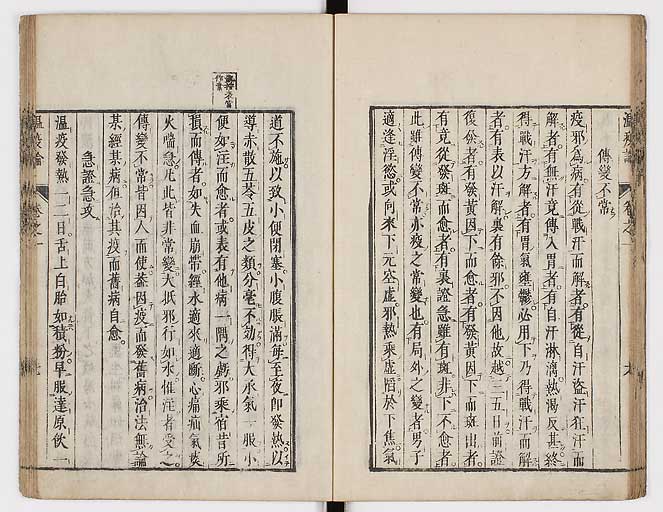 傳變不常
疫邪為病有從戰汗而解者有從自汗盜汗狂汗而
解者有無汗竟傳入胃者有自汗淋漓熱渴反甚終
得戰汗方解者有胃氣壅鬱必用下乃得戰汗而解
者有表以汗解裏有餘邪不因他故越三五日前證
復發者有發黃因下而愈者有發黃因下而斑出者
有竟從發斑而愈者有裏證急雖有斑非下不愈者
此雖傳變不常亦疫之常變也有局外之變者男子
適逢淫慾或向來下元空虛邪熱乘虛陷於下焦氣
道不施以致小便閉塞小腹脹滿每至夜即發熱以
導赤散五苓五皮之類分毫不効得大承氣一服小
便如注而愈者或表有他病一隅之虧邪乘宿昔所
損而傳者如失血崩帶經水適來適斷心痛疝氣痰
火喘急凡此皆非常變大抵邪行如水惟注者受之
傳變不常皆因人而使蓋因疫而發舊病治法無論
某經某病但治其疫而舊病自愈
急證急攻
溫疫發熱一二日舌上白胎如積粉早服達原飲一
溫疫論
卷之一